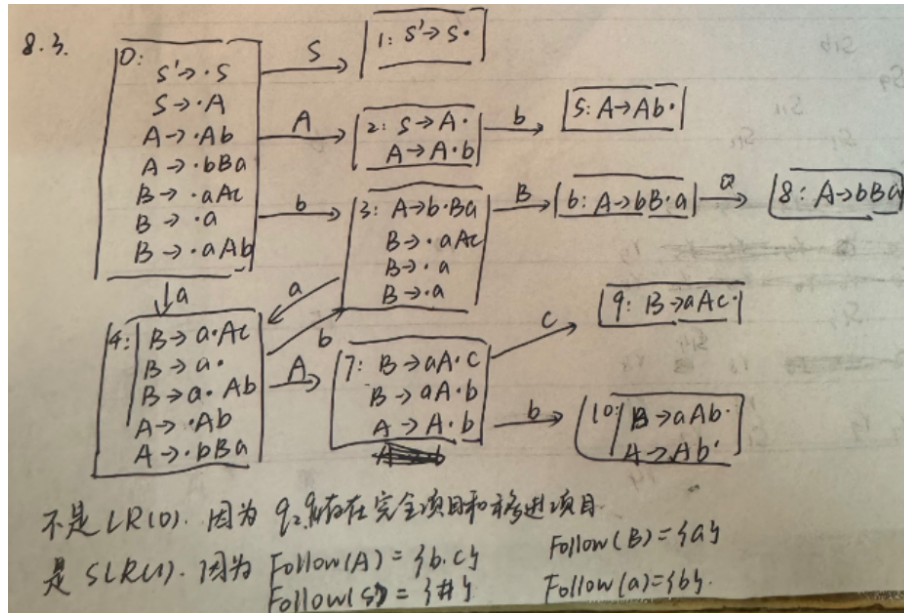 8.3.
0:
S'→·S
S→·A
A→·Ab
A→·bBa
B→·aAc
B→·a
B→·aAb
S
1: S'→S·
A
2: S→A·
A→A·b
b
5: A→Ab·
b
3: A→b·Ba
B→·aAc
B→·a
B→·a
B
6: A→bB·a
a
8: A→bBa
a
a
b
4: B→a·Ac
B→a·
B→a·Ab
A→·Ab
A→·bBa
A
7: B→aA·c
B→aA·b
A→A·b
c
9: B→aAc·
b
10: B→aAb·
A→Ab·
不是LR(0). 因为 q2, 存在完全项目和移进项目
是SLR(1). 因为 Follow(A) = {b.c} Follow(B) = {a}
Follow(S) = {#} Follow(a) = {b}.